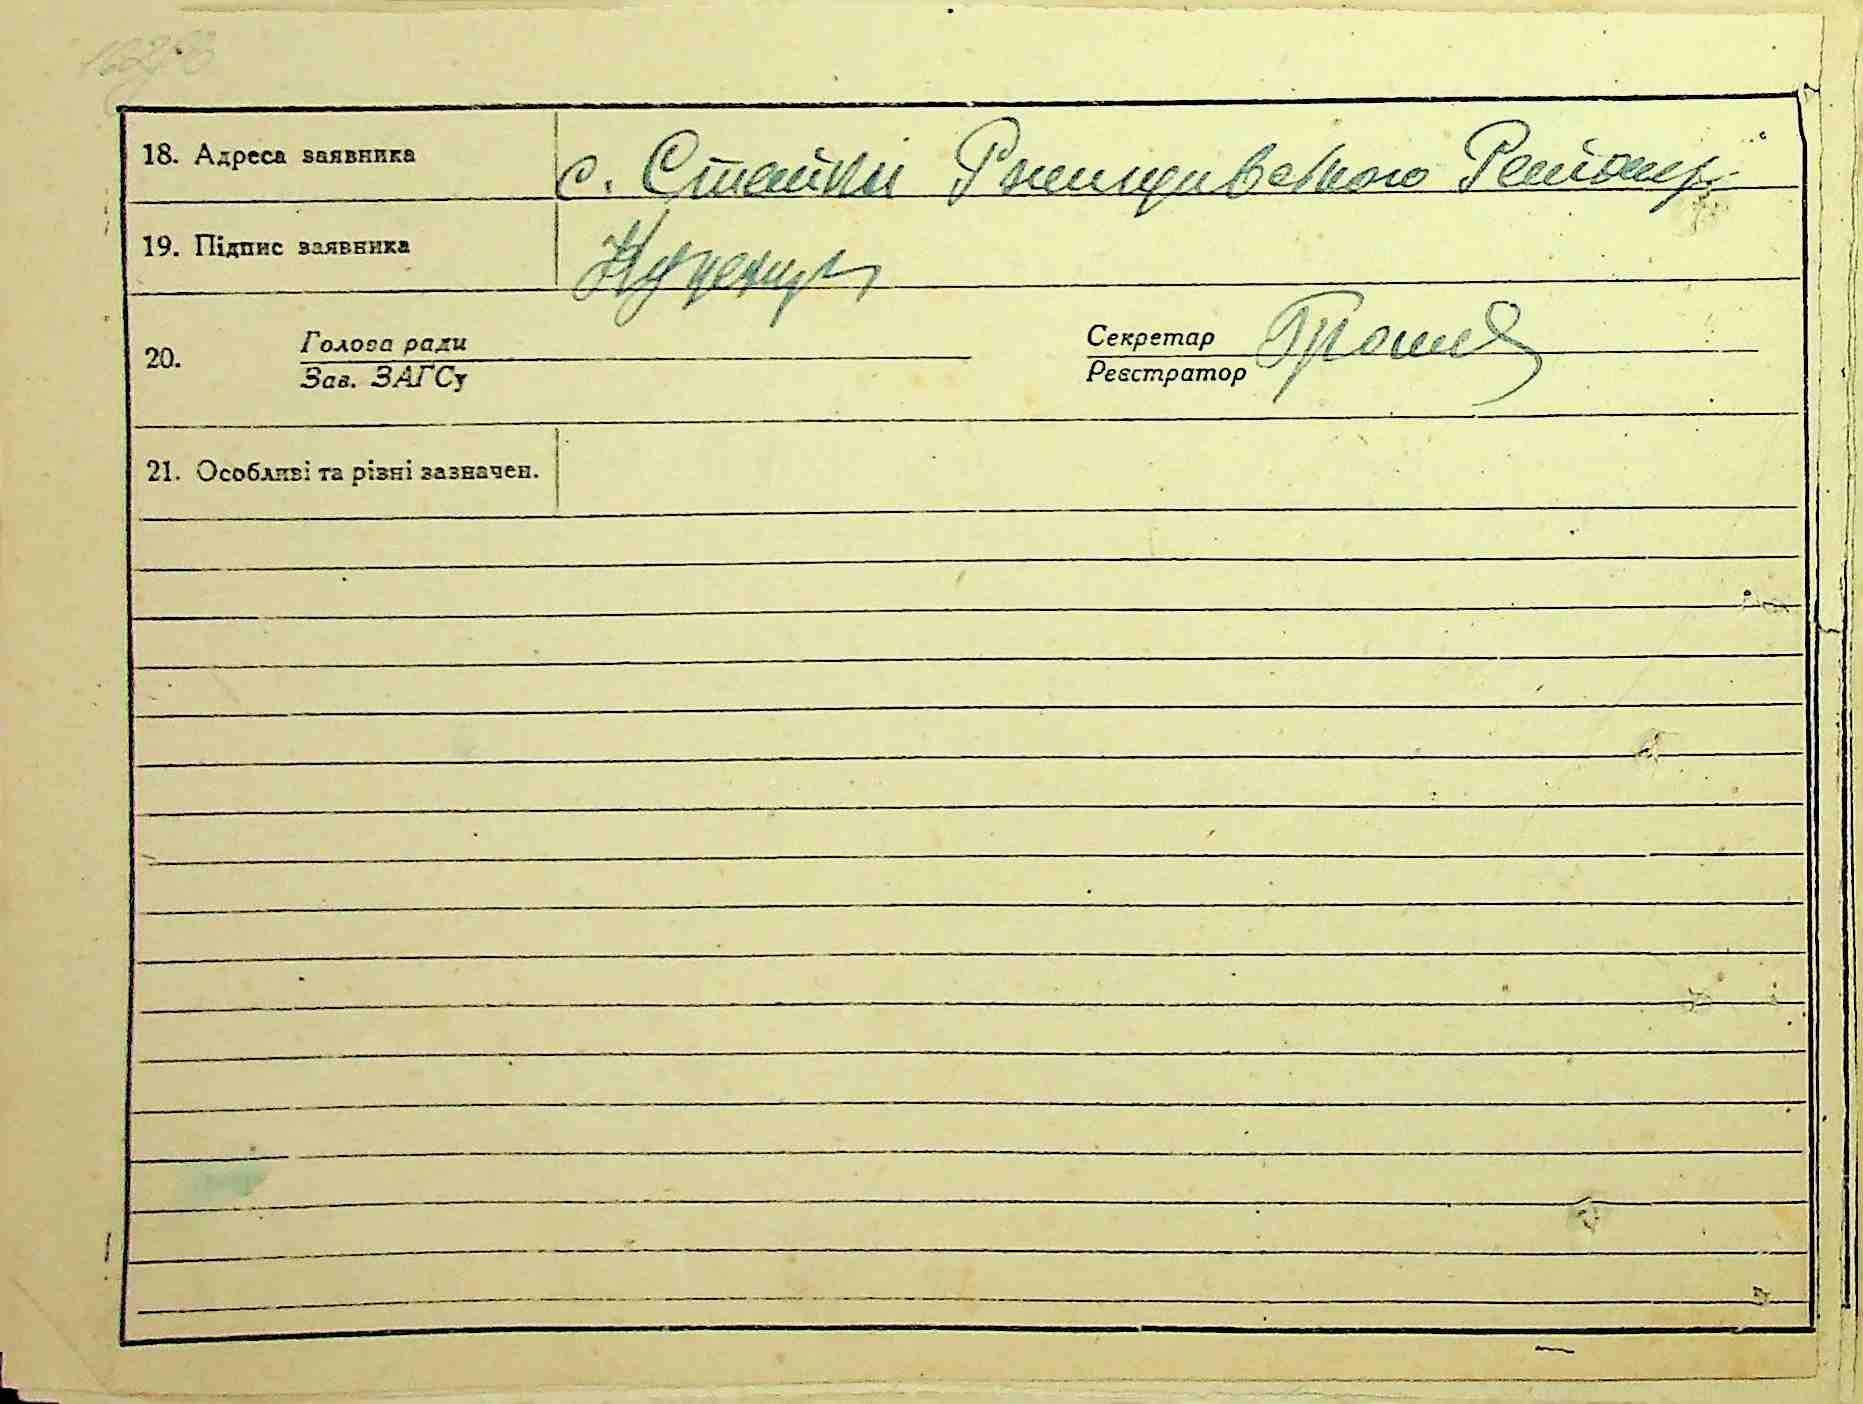 18. Адреса заявника с. Стайки Ржищивського Району
19. Підпис заявника
20. Голова ради Секретар
Зав. ЗАГСу Реєстратор
21. Особливі та різні зазначен.